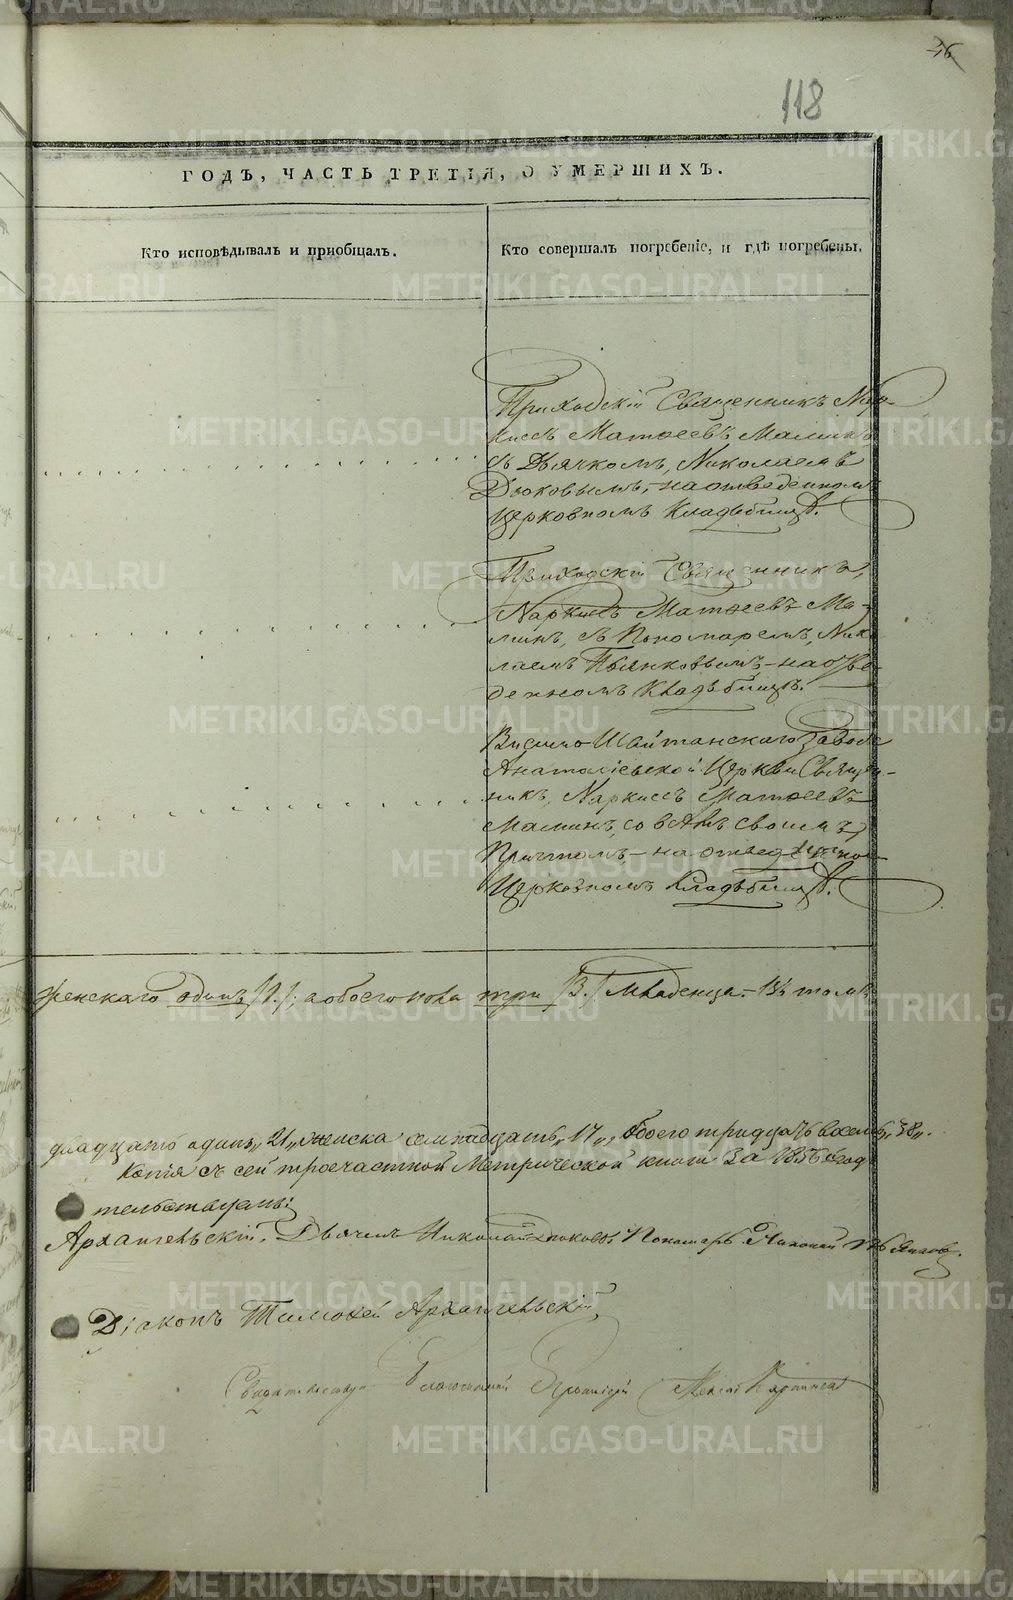 118
ГОДЪ, ЧАСТЬ ТРЕТІЯ, О УМЕРШИХЪ.
Кто исповѣдывалъ и пріобщалъ.
Кто совершалъ погребеніе, и гдѣ погребены.
Приходскій Священникъ Нар-
кисъ Матѳеевъ Маминъ
съ Дьячкомъ, Николаемъ
на отведенномъ
Церковномъ Кладьбищѣ.
Приходскій Священникъ,
Наркисъ Матѳеевъ Ма-
минъ, съ Пономаремъ, Нико
лаемъ Пьянковымъ – на отве
денномъ Кладьбищѣ.
Висимо Шайтанскаго завода
Анатоліевской Церкви Священ-
никъ, Наркисъ Матѳеевъ
Маминъ, со всѣмъ своимъ
Причтомъ, – на отведенномъ
Церковномъ Кладьбищѣ.
женскаго одинъ /1./ а обоего пола три /3./ младенца. – Въ томъ
двадцать одинъ „21„ женска семнадцать „17„, обоего тридцать восемь „38„.
Копія съ сей троечастной Метрической книги за годъ
тельствуемъ:
Архангельскій. Дьячекъ Николай Пономарь Николай Пьянковъ.
Діаконъ Тимоѳей Архангельскій
Свидетельствую Благочинный
METRIKI.GASO-URAL.RU